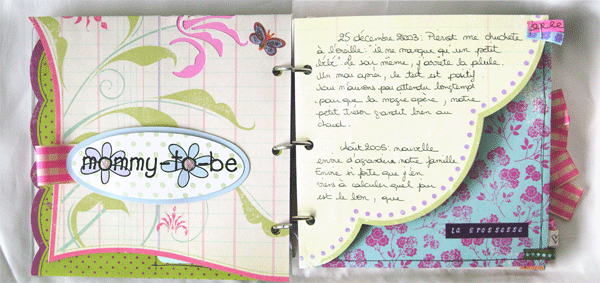 mommy-to-be
25 décembre 2003: Pierrot me chuchote
à l'oreille: "il ne manque qu'un petit
bébé". Le soir même, j'arrête la pilule.
Un mois après, le test est positif.
Nous n'aurons pas attendu longtemps
pour que la magie opère, notre
petit trésor grandit bien au
chaud.
Août 2005: nouvelle
envie d'agrandir notre famille
Envie si forte que j'en
viens à calculer quel jour
est le bon, que
la grossesse